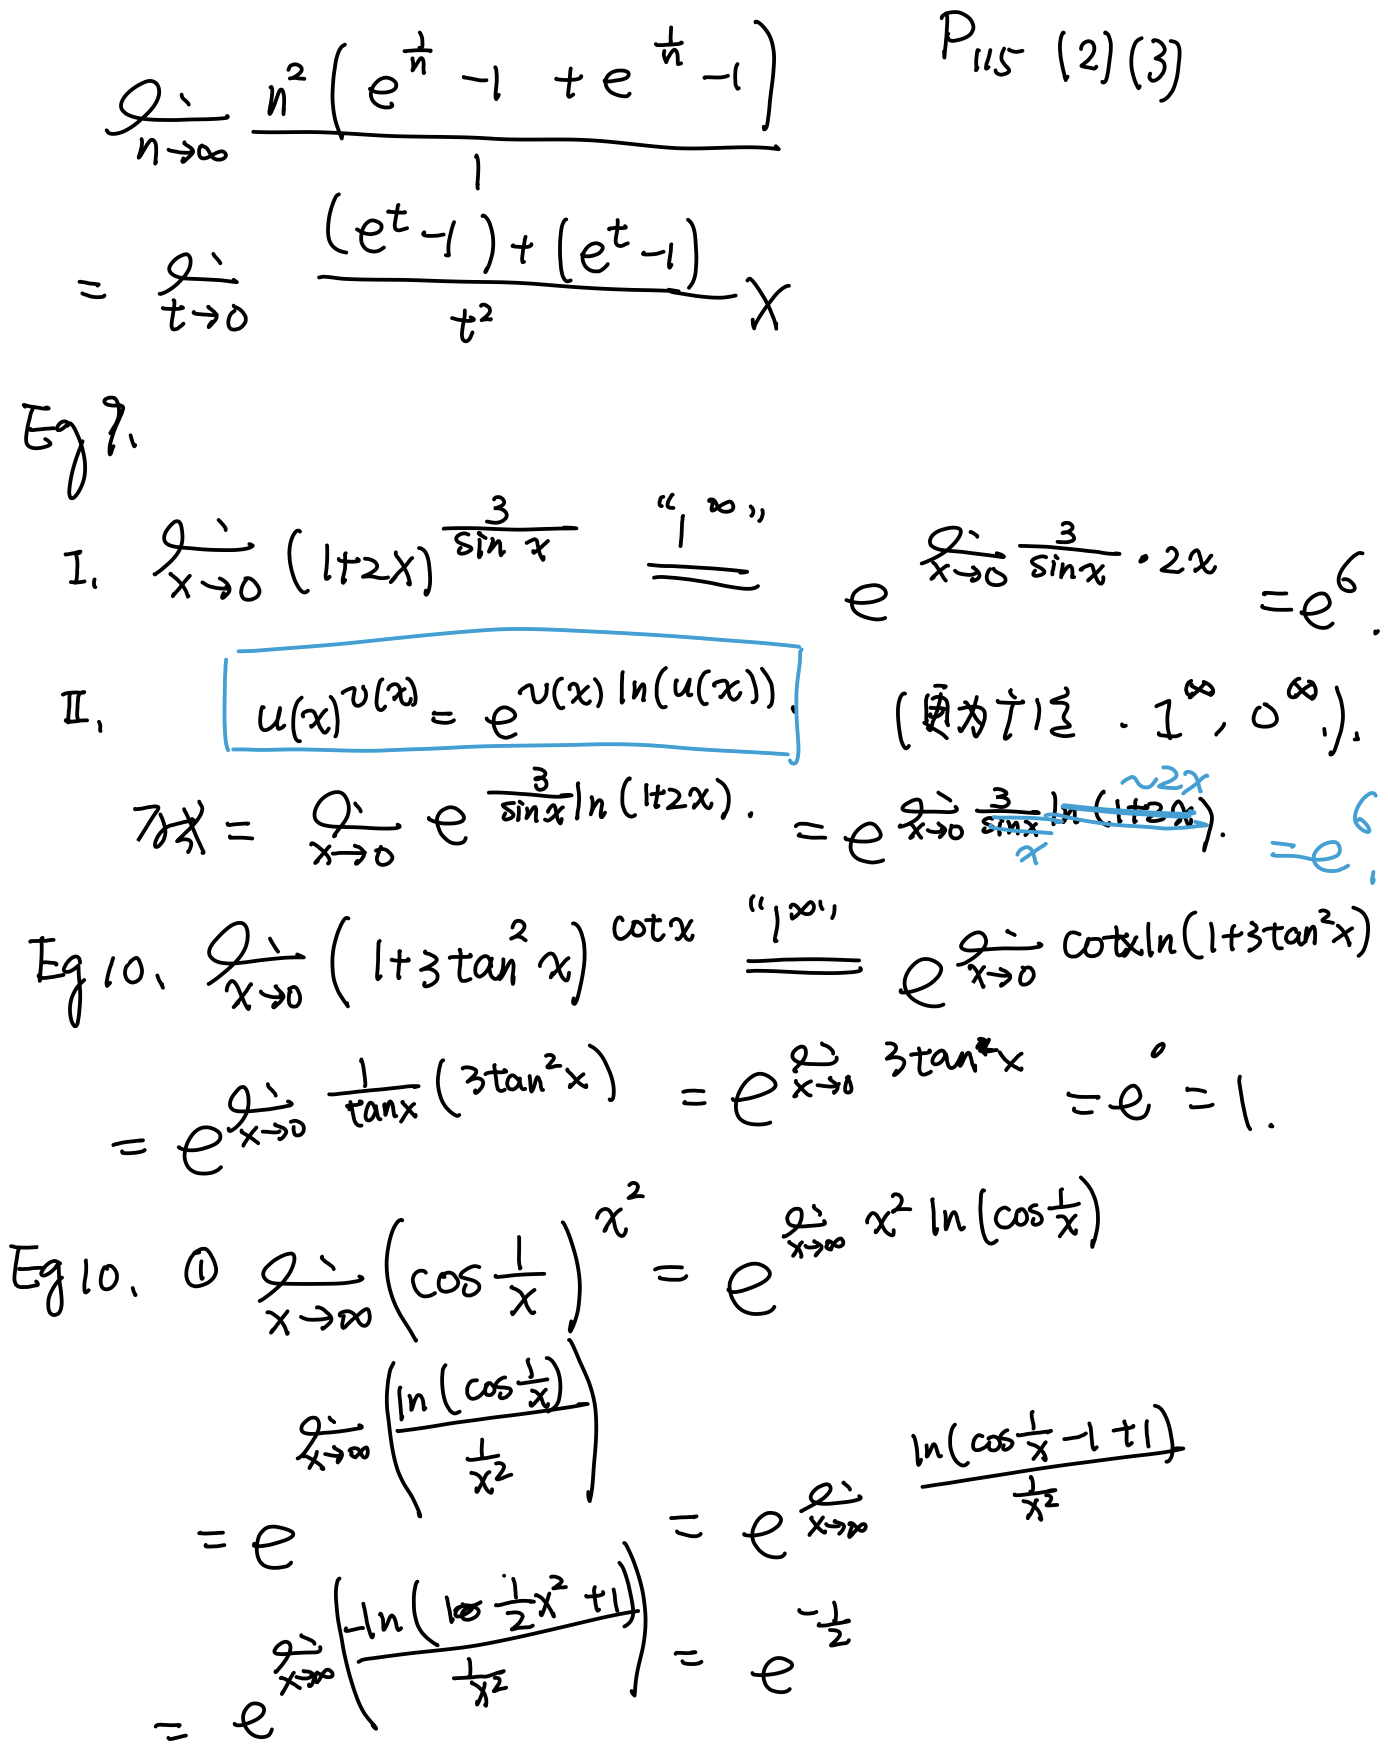 P115 (2)(3)
lim n→∞ n²(e^(1/n) -1 + e^(1/n) -1) / 1
= lim t→0 ((e^t -1) + (e^t -1)) / t² X
Eg 9.
I. lim x→0 (1+2x)^(3/sin x) "1^∞" = e^(lim x→0 3/sinx · 2x) = e^6.
II. u(x)^v(x) = e^(v(x) ln(u(x))). ( . 1^∞, 0^∞.).
= lim x→0 e^(3/sinx ln(1+2x)). = e^(lim x→0 3/sinx ln(1+2x)). ~2x x = e^6.
Eg 10. lim x→0 (1+3tan²x)^cotx "1^∞" = e^(lim x→0 cotx ln(1+3tan²x))
= e^(lim x→0 1/tanx (3tan²x)) = e^(lim x→0 3tan x) = e^0 = 1.
Eg 10. ① lim x→∞ (cos 1/x)^x² = e^(lim x→∞ x² ln(cos 1/x))
= e^(lim x→∞ (ln(cos 1/x) / (1/x²))) = e^(lim x→∞ ln(cos 1/x -1 +1) / (1/x²))
= e^(lim x→∞ (-ln( 1/2 x² +1) / (1/x²))) = e^(-1/2)